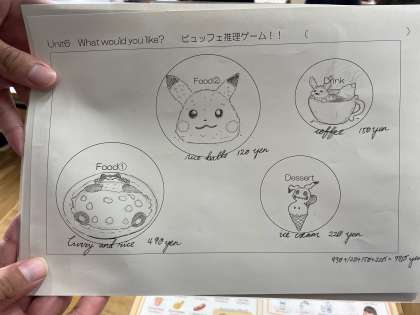 Unit6 What would you like? ビュッフェ推理ゲーム!! ( )
Food②
Drink
coffee 150 yen
rice balls 120 yen
Food①
Dessert
Curry and rice 490 yen
ice cream 220 yen